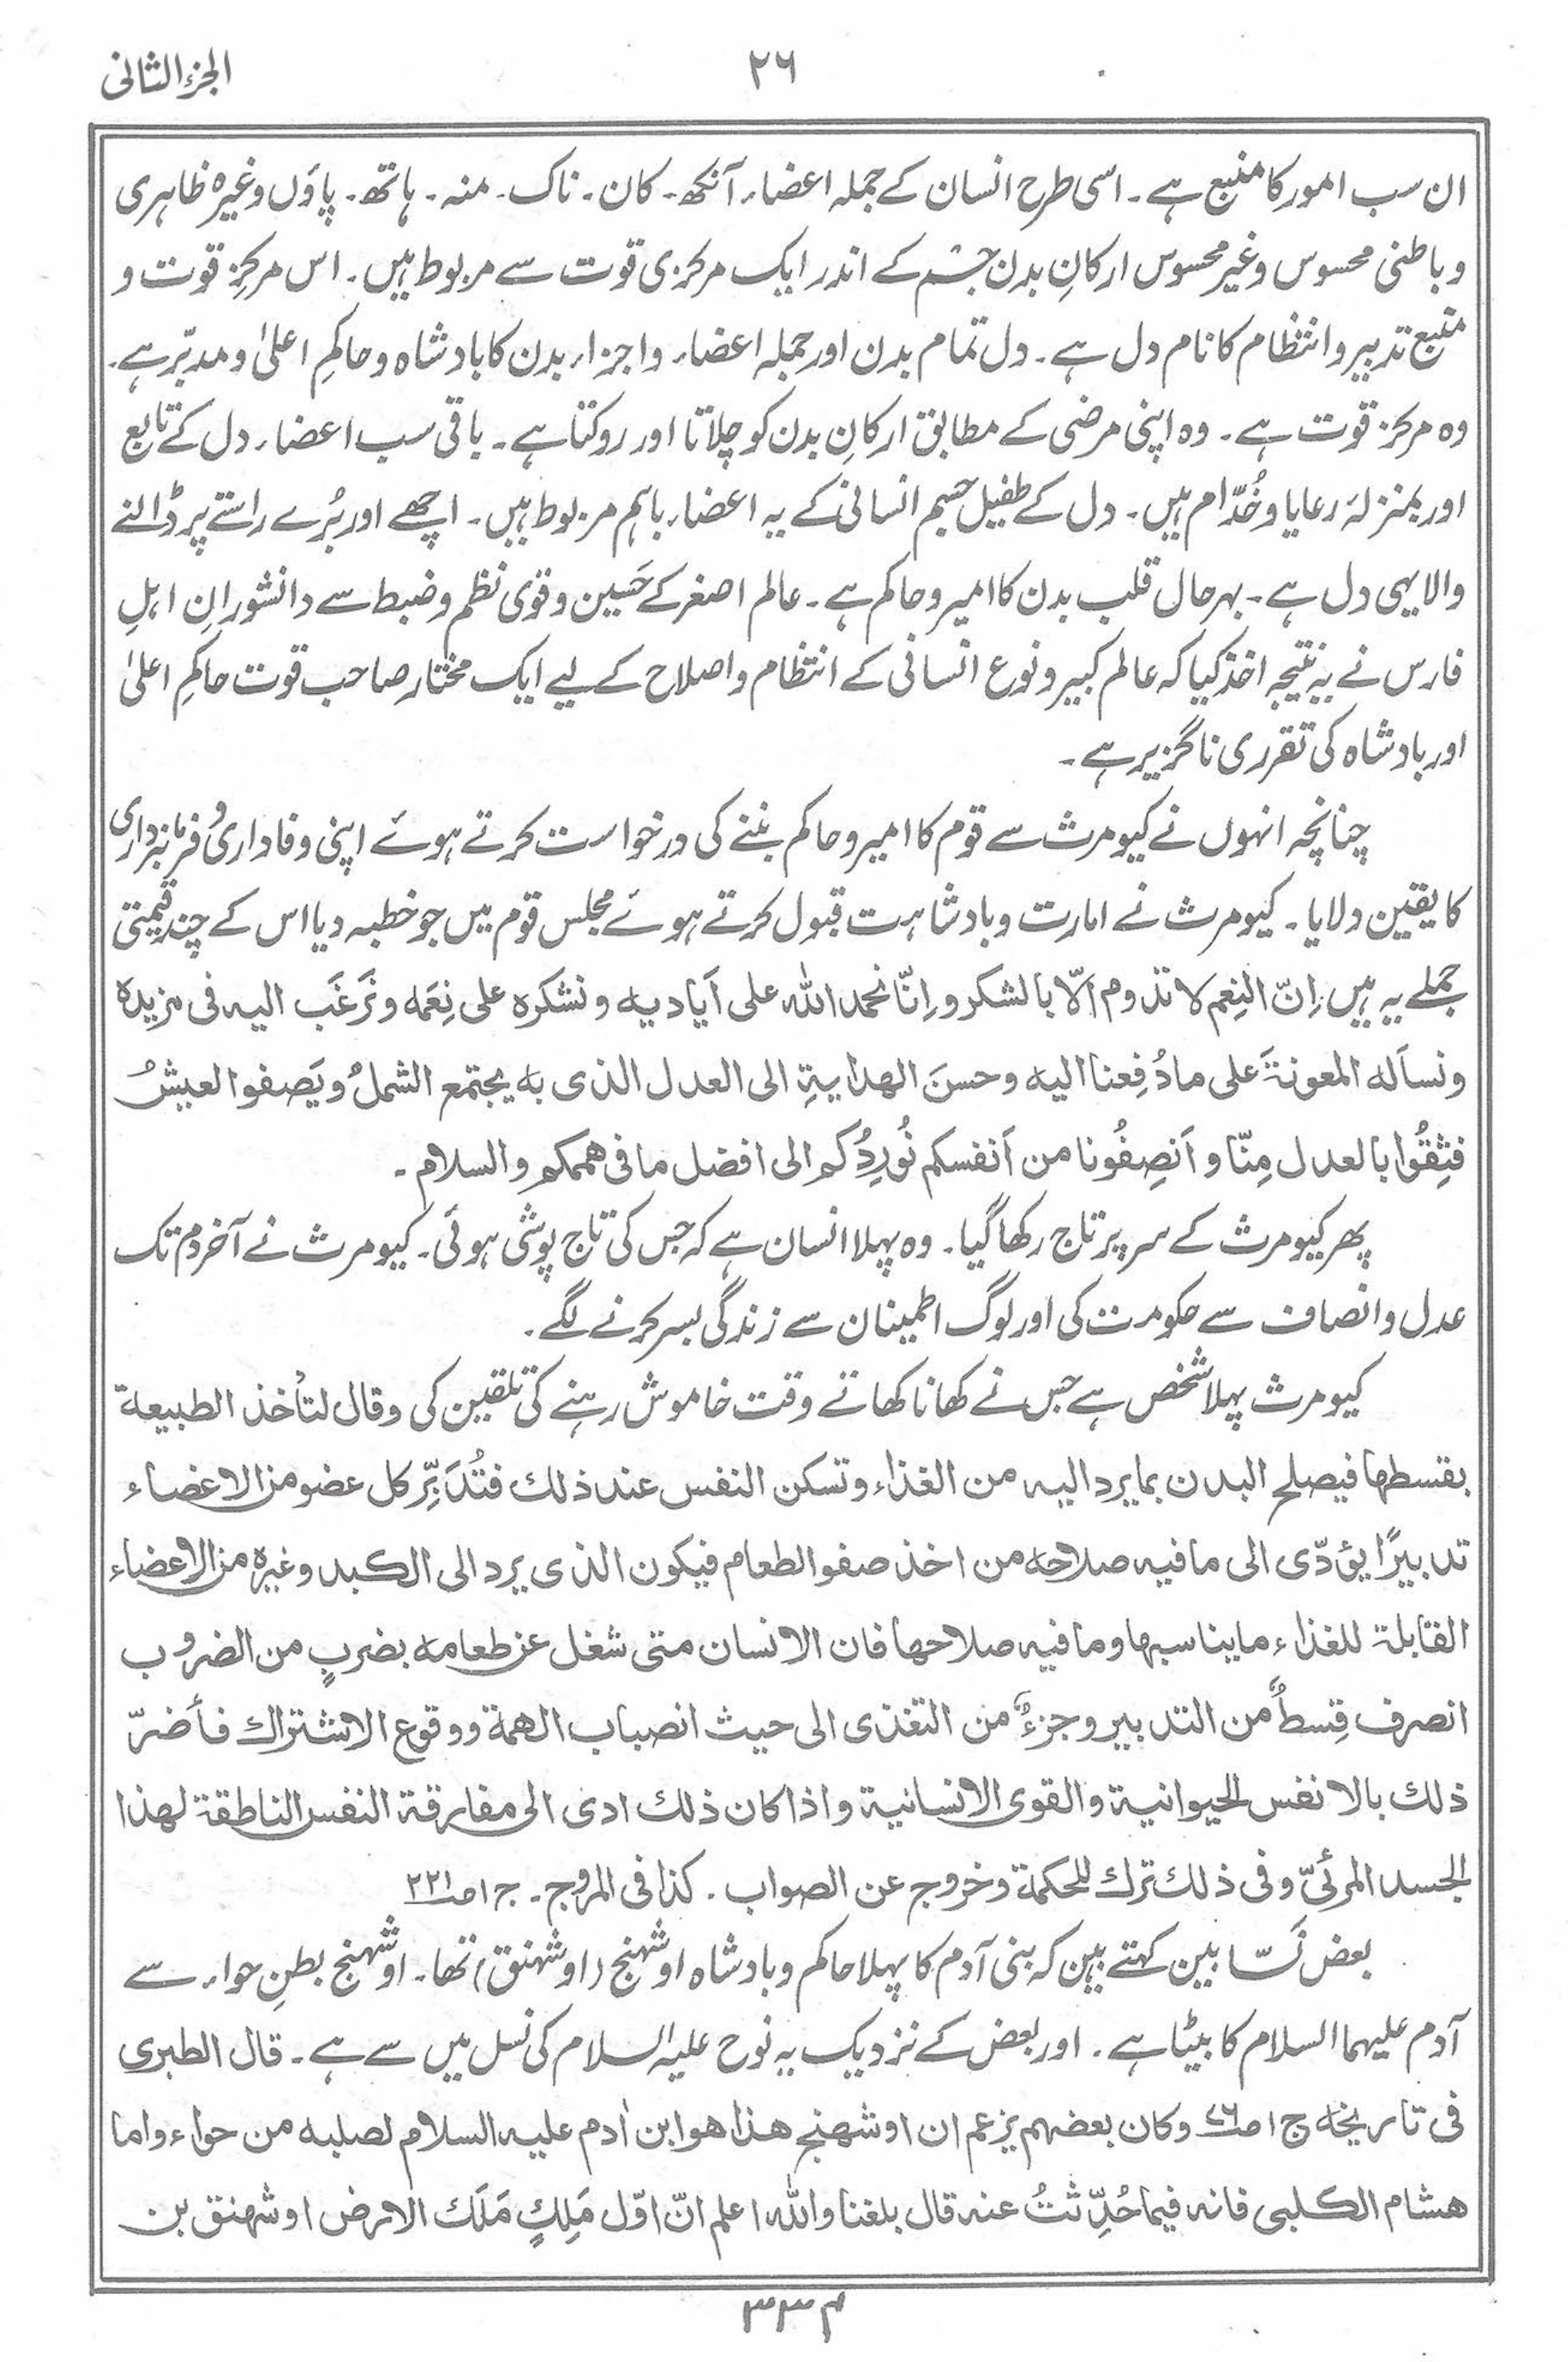 الجزء الثانی
۲۶
ان سب امور کا منبع ہے۔ اسی طرح انسان کے جملہ اعضاء آنکھ۔ کان۔ ناک۔ منہ۔ ہاتھ۔ پاؤں وغیرہ ظاہری
و باطنی محسوس و غیر محسوس ارکانِ بدن جسم کے اندر ایک مرکزی قوت سے مربوط ہیں۔ اس مرکزِ قوت و
منبع تدبیر و انتظام کا نام دل ہے۔ دل تمام بدن اور جملہ اعضاء و اجزاء بدن کا بادشاہ و حاکمِ اعلیٰ و مدبّر ہے۔
وہ مرکز قوت ہے۔ وہ اپنی مرضی کے مطابق ارکانِ بدن کو چلاتا اور روکتا ہے۔ باقی سب اعضاء دل کے تابع
اور بمنزلۂ رعایا و خُدّام ہیں۔ دل کے طفیل جسم انسانی کے یہ اعضاء باہم مربوط ہیں۔ اچھے اور بُرے راستے پر ڈالنے
والا یہی دل ہے۔ بہرحال قلب بدن کا امیر و حاکم ہے۔ عالم اصغر کے حَسین و قوی نظم و ضبط سے دانشورانِ اہلِ
فارس نے یہ نتیجہ اخذ کیا کہ عالم کبیر و نوع انسانی کے انتظام و اصلاح کے لیے ایک مختار صاحب قوت حاکمِ اعلیٰ
اور بادشاہ کی تقرری ناگزیر ہے۔
چنانچہ انہوں نے کیومرث سے قوم کا امیر و حاکم بننے کی درخواست کرتے ہوئے اپنی وفاداری و فرمانبرداری
کا یقین دلایا۔ کیومرث نے امارت و بادشاہت قبول کرتے ہوئے مجلس قوم میں جو خطبہ دیا اس کے چند قیمتی
جملے یہ ہیں۔ اِنّ النِعم لا تدوم الّا بالشکر و اِنّا نحمد اللہ علی اَیادیہ و نشکرہ علی نِعَمہ و نَرغَب الیہ فی مزیدہ
و نسأله المعونۃَ علی ما دُفِعنا الیہ و حسنَ الھدایۃِ الی العدل الذی بہ یجتمع الشملُ و یَصفو العیشُ
فثِقُوا بالعدل مِنّا و اَنصِفُونا من اَنفسکم نُورِدُکم الی افضل ما فی ھممکم والسلام۔
پھر کیومرث کے سر پر تاج رکھا گیا۔ وہ پہلا انسان ہے کہ جس کی تاج پوشی ہوئی۔ کیومرث نے آخر دم تک
عدل و انصاف سے حکومت کی اور لوگ اطمینان سے زندگی بسر کرنے لگے۔
کیومرث پہلا شخص ہے جس نے کھانا کھاتے وقت خاموش رہنے کی تلقین کی و قال لتأخذ الطبیعۃ
بقسطھا فیصلح البدن بما یرد الیہ من الغذاء و تسکن النفس عند ذلک فتُدَبِّر کل عضو من الاعضاء
تدبیرًا یؤدّی الی ما فیہ صلاحہ من اخذ صفو الطعام فیکون الذی یرد الی الکبد و غیرہ من الاعضاء
القابلۃ للغذاء ما یناسبھا و ما فیہ صلاحھا فان الانسان متی شغل عن طعامہ بضربٍ من الضروب
انصرف قِسطٌ من التدبیر و جزءٌ من التغذی الی حیث انصباب الھمۃ و وقوع الاشتراک فأضرّ
ذلک بالانفس الحیوانیۃ و القوی الانسانیۃ و اذا کان ذلک ادی الی مفارقۃ النفس الناطقۃ لھذا
الجسد المرئیّ و فی ذلک ترک للحکمۃ و خروج عن الصواب۔ کذا فی المروج۔ ج ۱ ص ۲۲۱
بعض نَسّابین کہتے ہیں کہ بنی آدم کا پہلا حاکم و بادشاہ اوشہنج (اوشہنق) تھا۔ اوشہنج بطنِ حواء سے
آدم علیہما السلام کا بیٹا ہے۔ اور بعض کے نزدیک یہ نوح علیہ السلام کی نسل میں سے ہے۔ قال الطبری
فی تاریخہ ج ۱ ص و کان بعضھم یزعم ان اوشھنج ھذا ھو ابن اٰدم علیہ السلام لصلبہ من حواء و اما
ھشام الکلبی فانہ فیما حُدِّثتُ عنہ قال بلغنا و اللہ اعلم انّ اوّل مَلِکٍ مَلَک الارض اوشھنق بن
م ۳۳